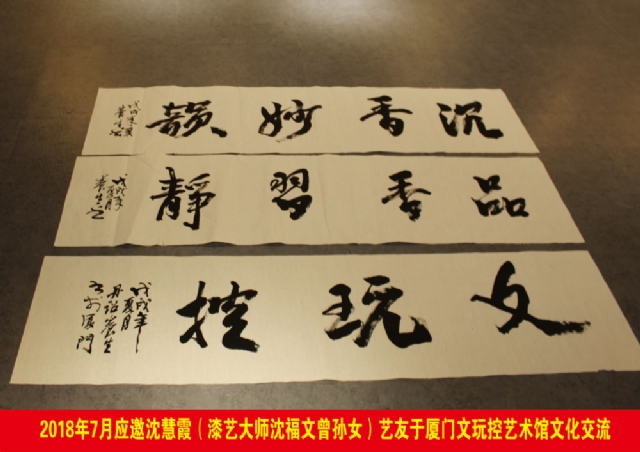 沉香妙韻
品香習靜
戊戌年
夏月
文玩控
戊戌年
夏月
丹詔農生
书於厦門
2018年7月应邀沈慧霞（漆艺大师沈福文曾孙女）艺友于厦门文玩控艺术馆文化交流